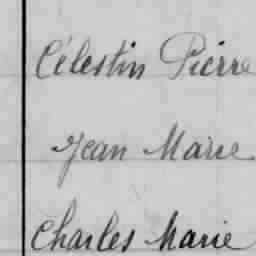 Célestin Pierre
Jean Marie
Charles Marie